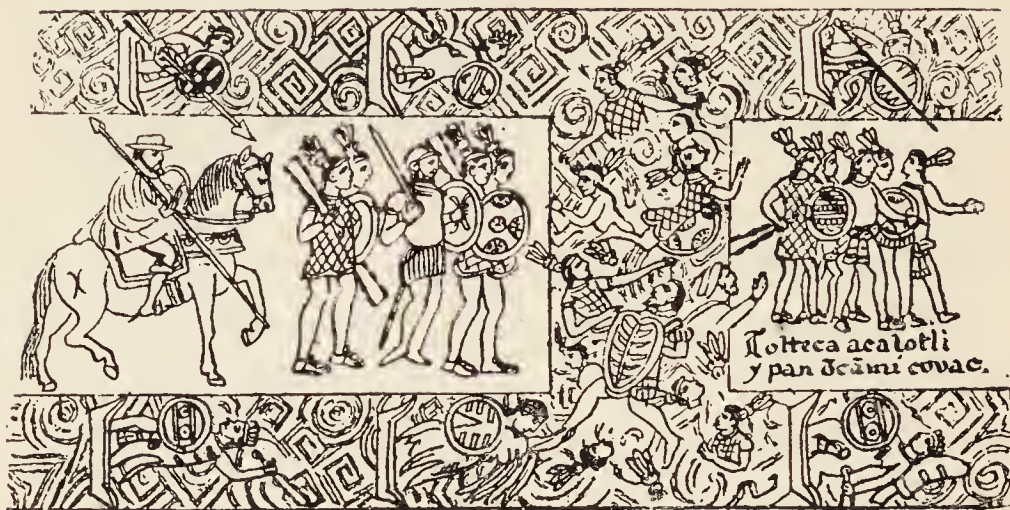 Tolteca acalotli
ypan ōcā mi covac.